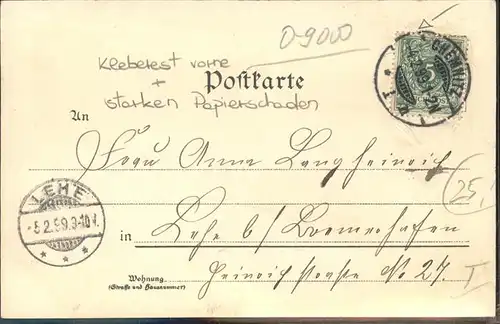 0-9000
Kleberest vorne
+
starken Papierschaden
Postkarte
CHEMNITZ
An
Frau Anna Langheinrich
LEHE
5.2.99. 9-10 V.
25,
in Lehe b/ Bremerhafen
Heinrichstraße No 27. I
Wohnung
(Straße und Hausnummer)